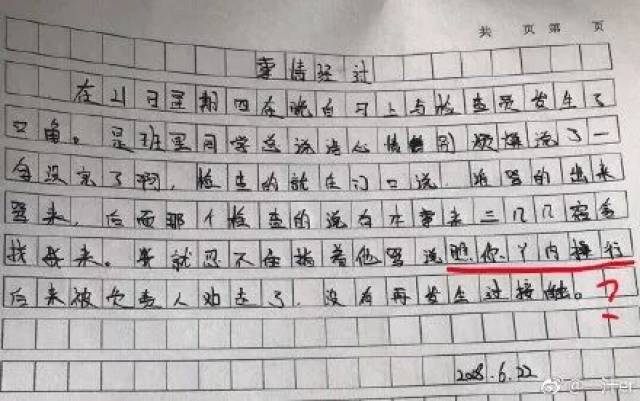 共 页 第 页
事情经过
在21日星期四在晚自习上与检查员发生了
口角。是班里同学总说话心情特别烦燥说了一
句没完了啊,检查的就在门口说,谁骂的出来
骂来,后面那个检查的说有本事来三几几宿舍
找我来。我就忍不住指着他骂说瞧你丫内操行
后来被负责人劝走了,没有再发生过接触。?
2018.6.22